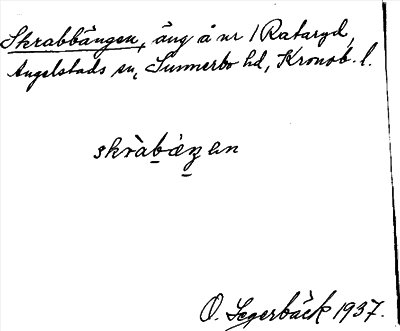 Skrabbängen, äng å nr 1 Rataryd,
Angelstads sn, Sunnerbo hd, Kronob. l.
skràbæŋen
O. Segerbäck 1937.